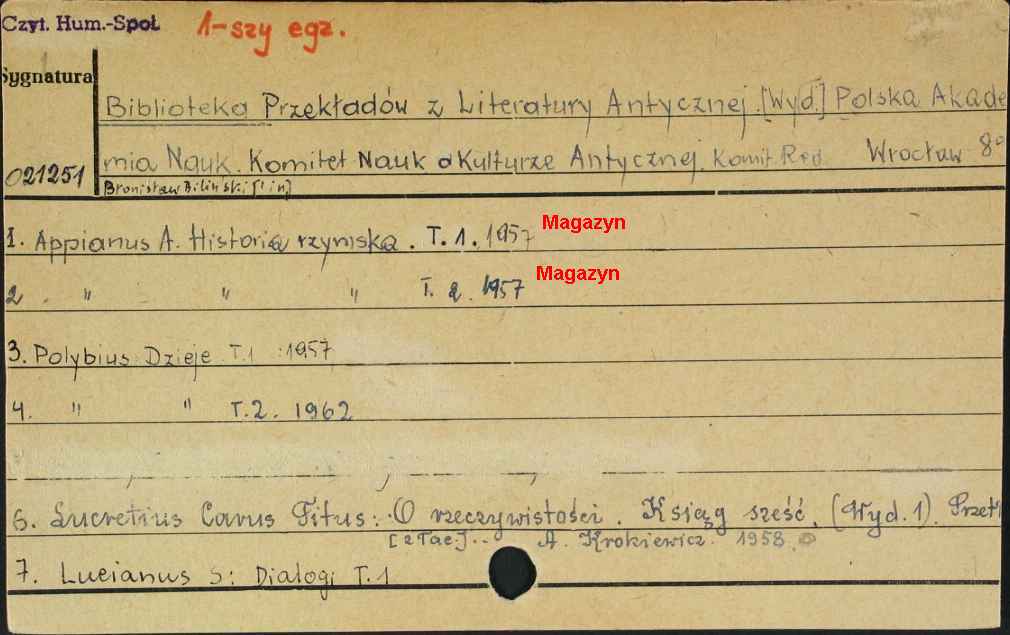 Czyt. Hum.-Społ. 1-szy egz.
Sygnatura
Biblioteka Przekładów z Literatury Antycznej. [Wyd.] Polska Akade
mia Nauk. Komitet Nauk o Kulturze Antycznej. Komit. Red. Wrocław 8°
021251
Bronisław Biliński [i in]
1. Appianus A. Historia rzymska. T. 1. 1957 Magazyn
2. " " " T. 2. 1957 Magazyn
3. Polybius Dzieje T.1 1957
4. " " T.2. 1962
6. Lucretius Carus Titus: O rzeczywistości. Ksiąg sześć. (Wyd. 1). Przekł
A. Krokiewicz. 1958.
7. Lucianus S: Dialogi T.1